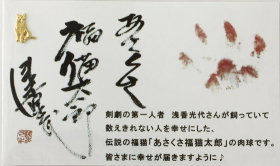 あさくさ
福猫太郎
剣劇の第一人者　浅香光代さんが飼っていて
数えきれない人を幸せにした、
伝説の福猫「あさくさ福猫太郎」の肉球です。
皆さまに幸せが届きますように♪